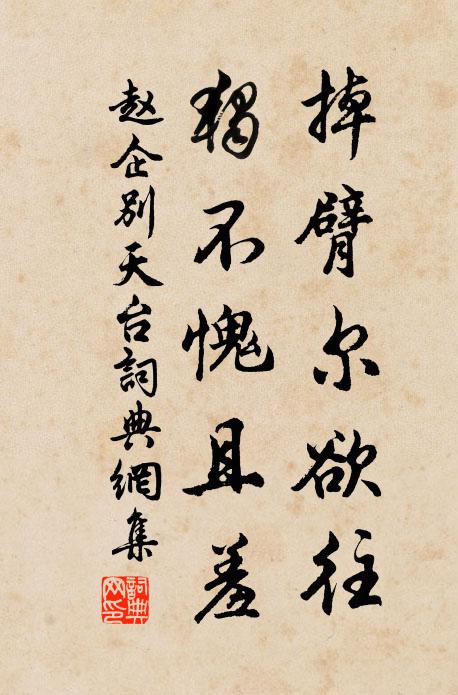 掉臂尔欲往
独不愧且羞
赵企别天台詞典網集
詞典网印